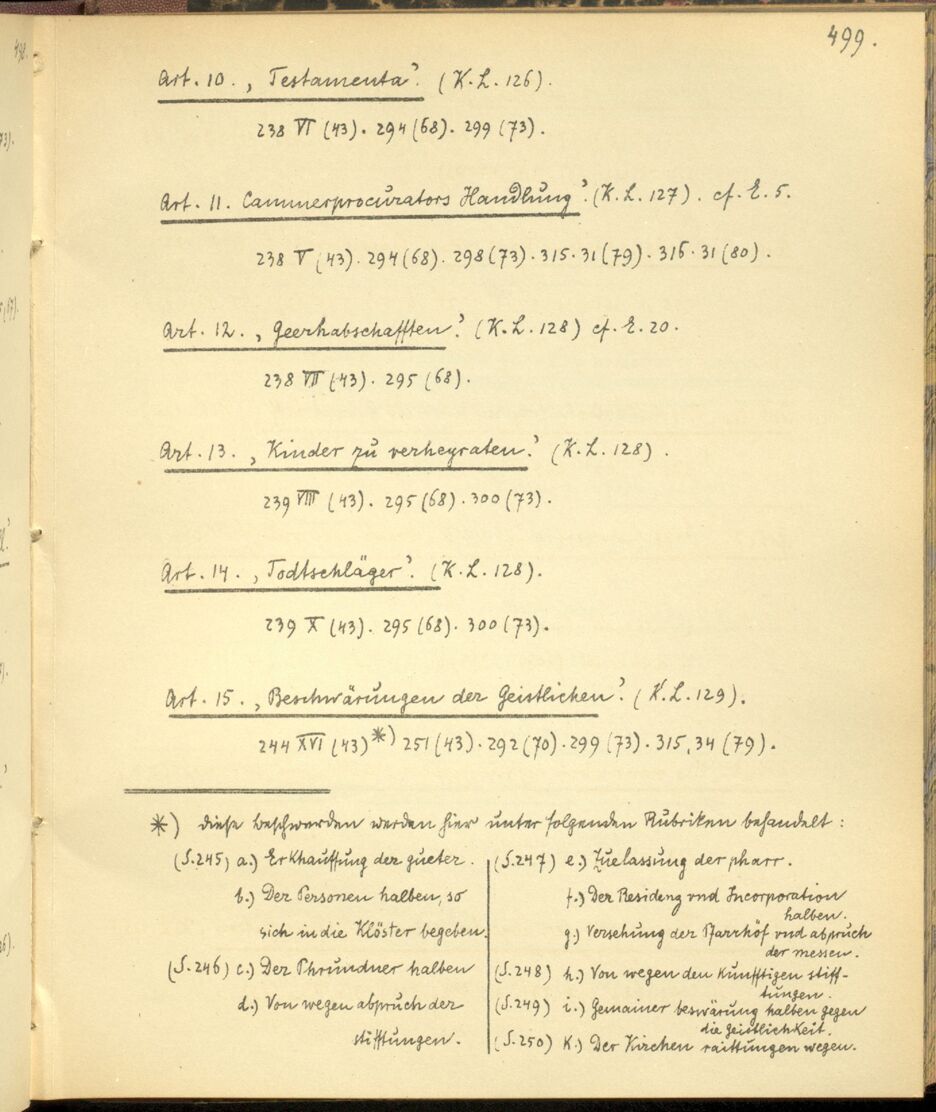 499.
Art. 10. ‚Testamenta‘. (K.L. 126).
238 VI (43). 294 (68). 299 (73).
Art. 11. Cammerprocurators Handlung‘. (K.L. 127). cf. E. 5.
238 V (43). 294 (68). 298 (73). 315. 31 (79). 316. 31 (80).
Art. 12. ‚Geerhabschafften‘. (K.L. 128) cf. E. 20.
238 VII (43). 295 (68).
Art. 13. ‚Kinder zu verheyraten‘. (K.L. 128).
239 VIII (43). 295 (68). 300 (73).
Art. 14. ‚Todtschläger‘. (K.L. 128).
239 X (43). 295 (68). 300 (73).
Art. 15. ‚Beschwärungen der Geistlichen‘. (K.L. 129).
244 XVI (43) *) 251 (43). 292 (70). 299 (73). 315, 34 (79).
*) diese beschwerden werden hier unter folgenden Rubriken behandelt:
(S. 245) a.) Erkhauffung der gueter.
b.) Der Personen halben, so
sich in die Klöster begeben.
(S. 246) c.) Der Phrundner halben
d.) Von wegen abpruch der
stifftungen.
(S. 247) e.) Zuelassung der pharr.
f.) Der Residenz vnd Incorporation
halben.
g.) Versehung der Pfarrhöf vnd abpruch
der messen.
(S. 248) h.) Von wegen den kunfftigen stiff-
tungen.
(S. 249) i.) Gemainer beswärung halben gegen
die Geistlichkeit.
(S. 250) k.) Der Kirchen raittungen wegen.